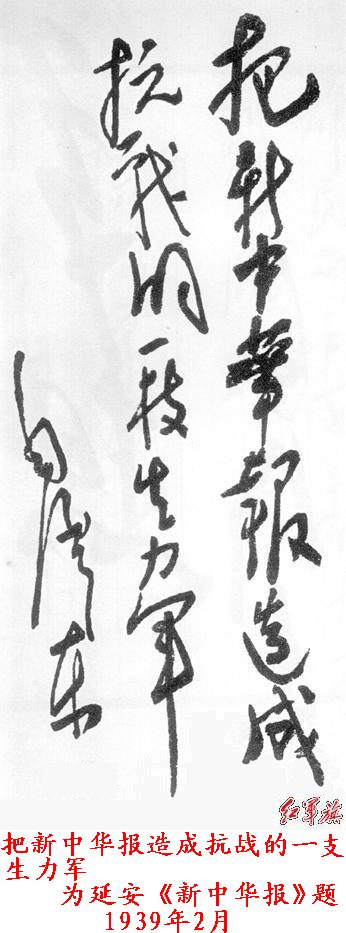 把新中華報造成
抗战的一枝生力軍
毛泽东
红军旗
把新中华报造成抗战的一支
生力军
为延安《新中华报》题
1939年2月